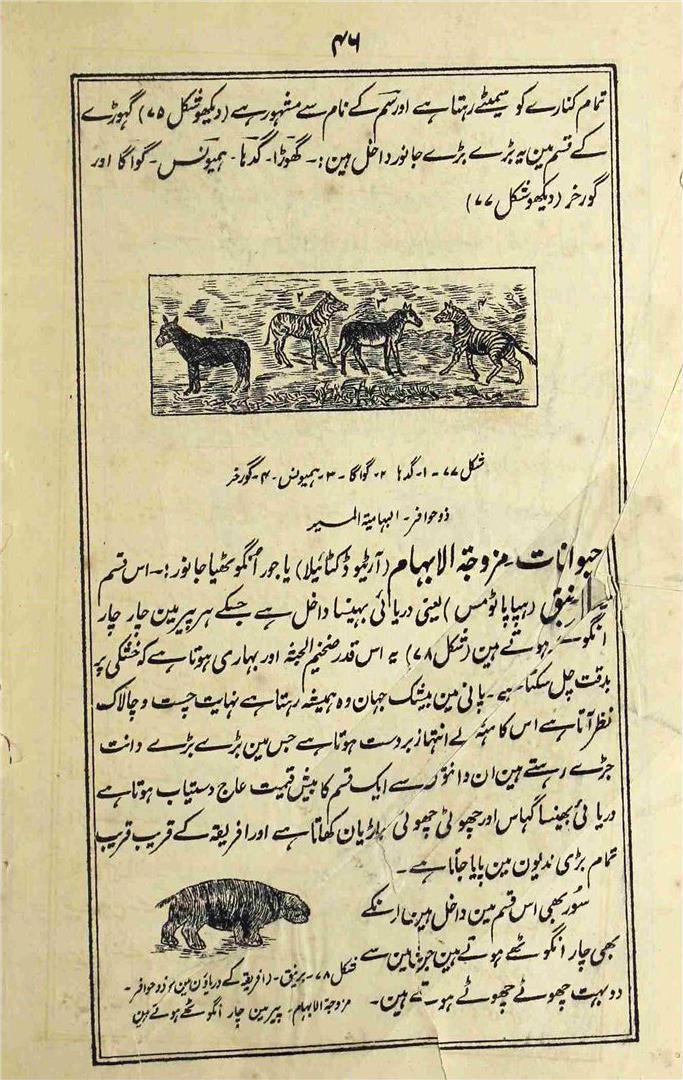 ۴۶
تمام کنارے کو سمیٹے رہتا ہے اور سُم کے نام سے مشہور ہے (دیکھو شکل ۷۵) گہوڑے
کے قسم مین یہ بڑے بڑے جانور داخل ہین :۔ گھوڑا۔ گدہا۔ ہمیونس۔ گواگا اور
گورخر (دیکھو شکل ۷۷)
۱ ۲ ۳ ۴
شکل ۷۷۔ ۱۔ گدہا ۲۔ گواگا۔ ۳۔ ہمیونس۔ ۴۔ گورخر
ذوحوافر۔
حیوانات۔ مزوجۃ الابہام (آرٹیوڈکٹائیلا) یا جور انگوٹھیا جانور :۔ اس قسم
(ہپاپاٹومس) یعنی دریائی بہینسا داخل ہے جسکے ہر پیر مین چار چار
ہوتے ہین (شکل ۷۸) یہ اس قدر ضخیم الجثہ اور بہاری ہوتا ہے کہ خشکی پر
بدقت چل سکتا ہے۔ پانی مین بیشک جہان وہ ہمیشہ رہتا ہے نہایت چست و چالاک
نظر آتا ہے اس کا منہ بے انتہا زبردست ہوتا ہے جس مین بڑے بڑے دانت
جڑے رہتے ہین ان دانتون سے ایک قسم کا بیش قیمت عاج دستیاب ہوتا ہے
دریائی بھینسا گہاس اور چھوٹی چھوٹی کھاتا ہے اور افریقہ کے قریب قریب
تمام بڑی ندیون مین پایا جاتا ہے۔
سُور بھی اس قسم مین داخل ہین انکے
بھی چار انگوٹھے ہوتے ہین جن مین سے
دو بہت چھوٹے چھوٹے ہوتے ہین۔
شکل ۷۸۔ برنیق۔ (افریقہ کے دریاؤن مین) ذوحوافر۔
مزوجۃ الابہام۔ پیر مین چار انگوٹھے ہوتے ہین